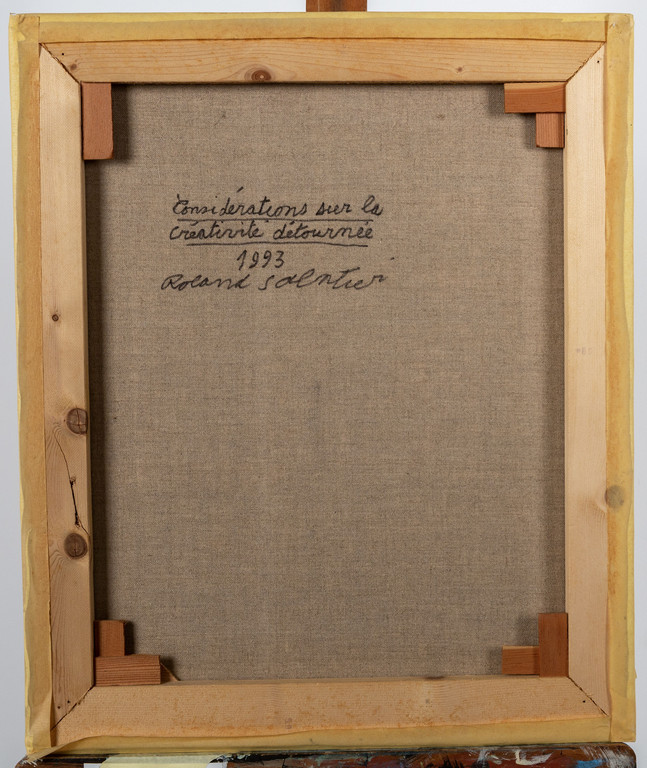 Considérations sur la
créativité détournée
1993
Roland Salntier